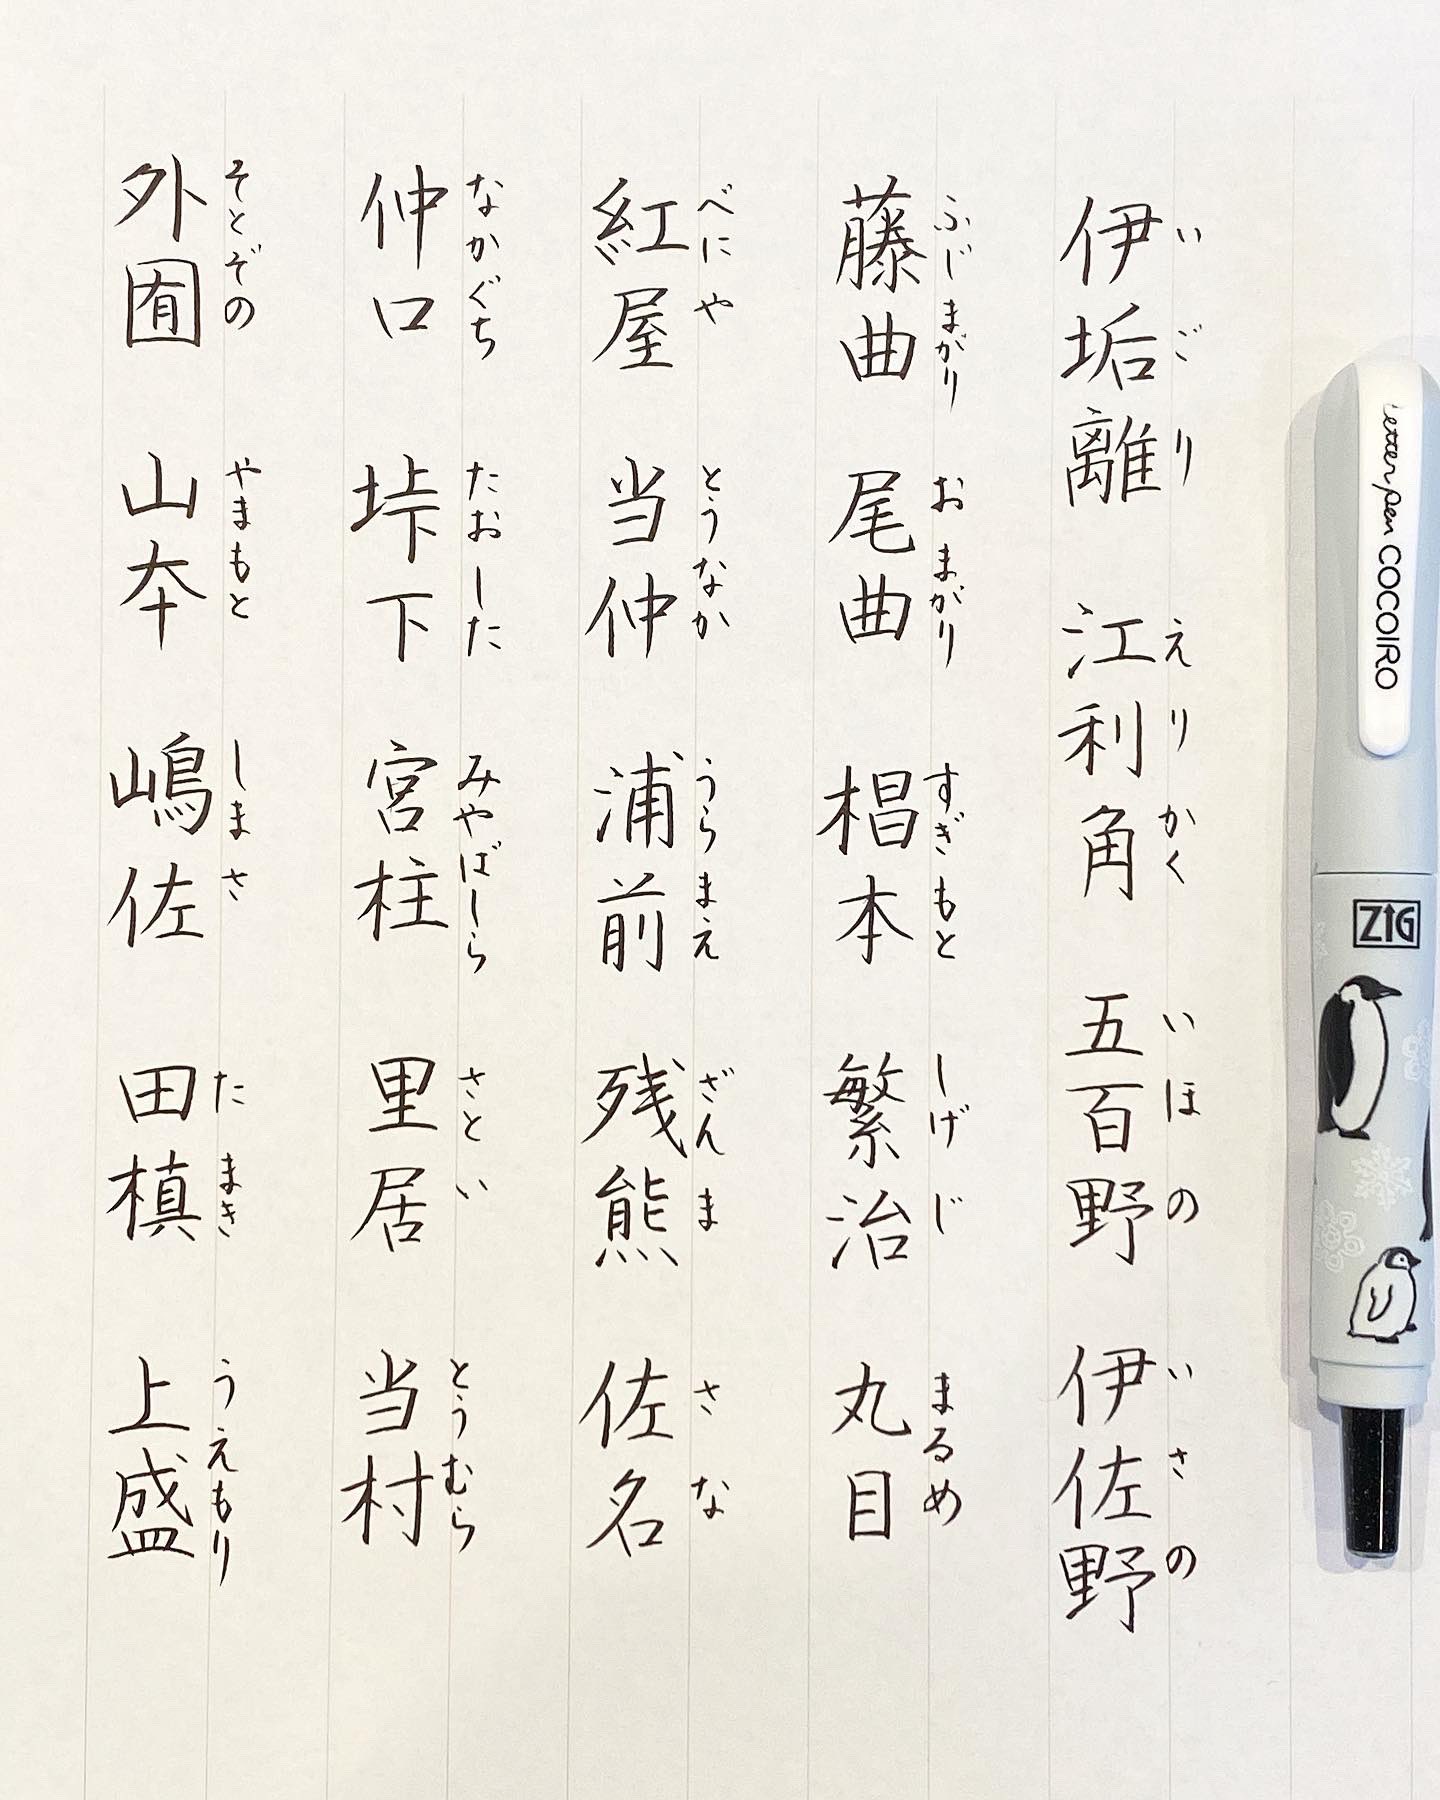 伊垢離 江利角 五百野 伊佐野
いごり えりかく いほの いさの
藤曲 尾曲 椙本 繁治 丸目
ふじまがり おまがり すぎもと しげじ まるめ
紅屋 当仲 浦前 残熊 佐名
べにや とうなか うらまえ ざんま さな
仲口 垰下 宮柱 里居 当村
なかぐち たおした みやばしら さとい とうむら
外囿 山夲 嶋佐 田槙 上盛
そとぞの やまもと しまさ たまき うえもり
letter pen COCOIRO
ZIG